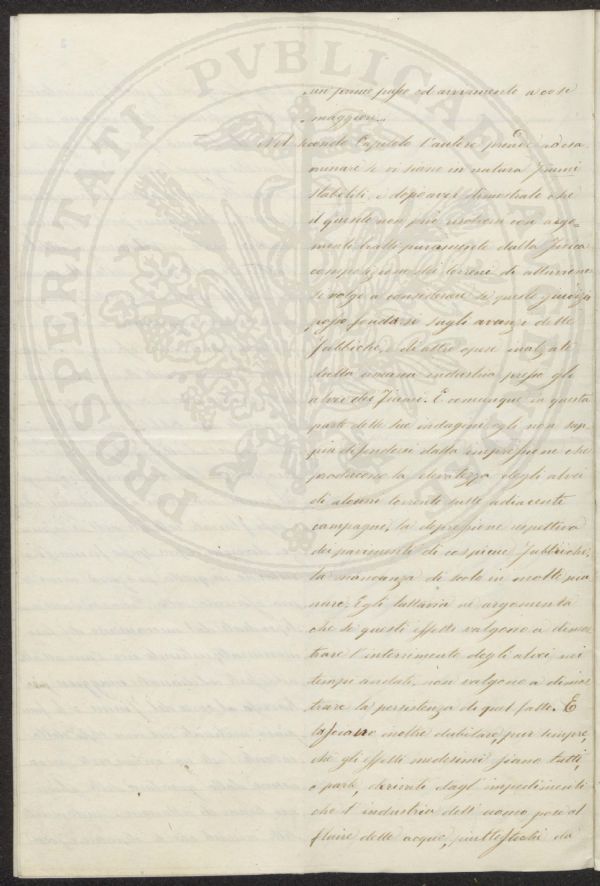 PROSPERITATI PVBLICAE AVGENDAE
un primo passo ed avviamento a cose
maggiori.
Nel secondo Capitolo l'autore prende ad esa
minare se vi siano in natura fiumi
stabiliti, e dopo aver dimostrato che
il quesito non può risolversi con argo=
menti tratti puramente dalla fisica
composizione dei terreni di alluvione
si volge a considerare se questo giudizio
possa fondarsi sugli avanzi delle
fabbriche, e di altre opere inalzate
dalla umana industria presso gli
alvei dei fiumi. E comunque in questa
parte delle sue indagini egli non sap
pia difendersi dalla impressione che
producono la elevatezza degli alvei
di alcuni torrenti sulle adiacenti
campagne, la depressione rispettiva
dei pavimenti di cospicue fabbriche,
la mancanza di scolo in molte pia
nure. Egli tuttavia ne argomenta
che se questi effetti valgono a dimos
trare l'interrimento degli alvei nei
tempi andati, non valgono a dimos
trare la persistenza di quel fatto. E
lasciano inoltre dubitare, pur sempre,
che gli effetti medesimi siano tutti,
o parte, derivati dagl'impedimenti
che l'industria dell'uomo pose al
fluire delle acque, piuttostochè da